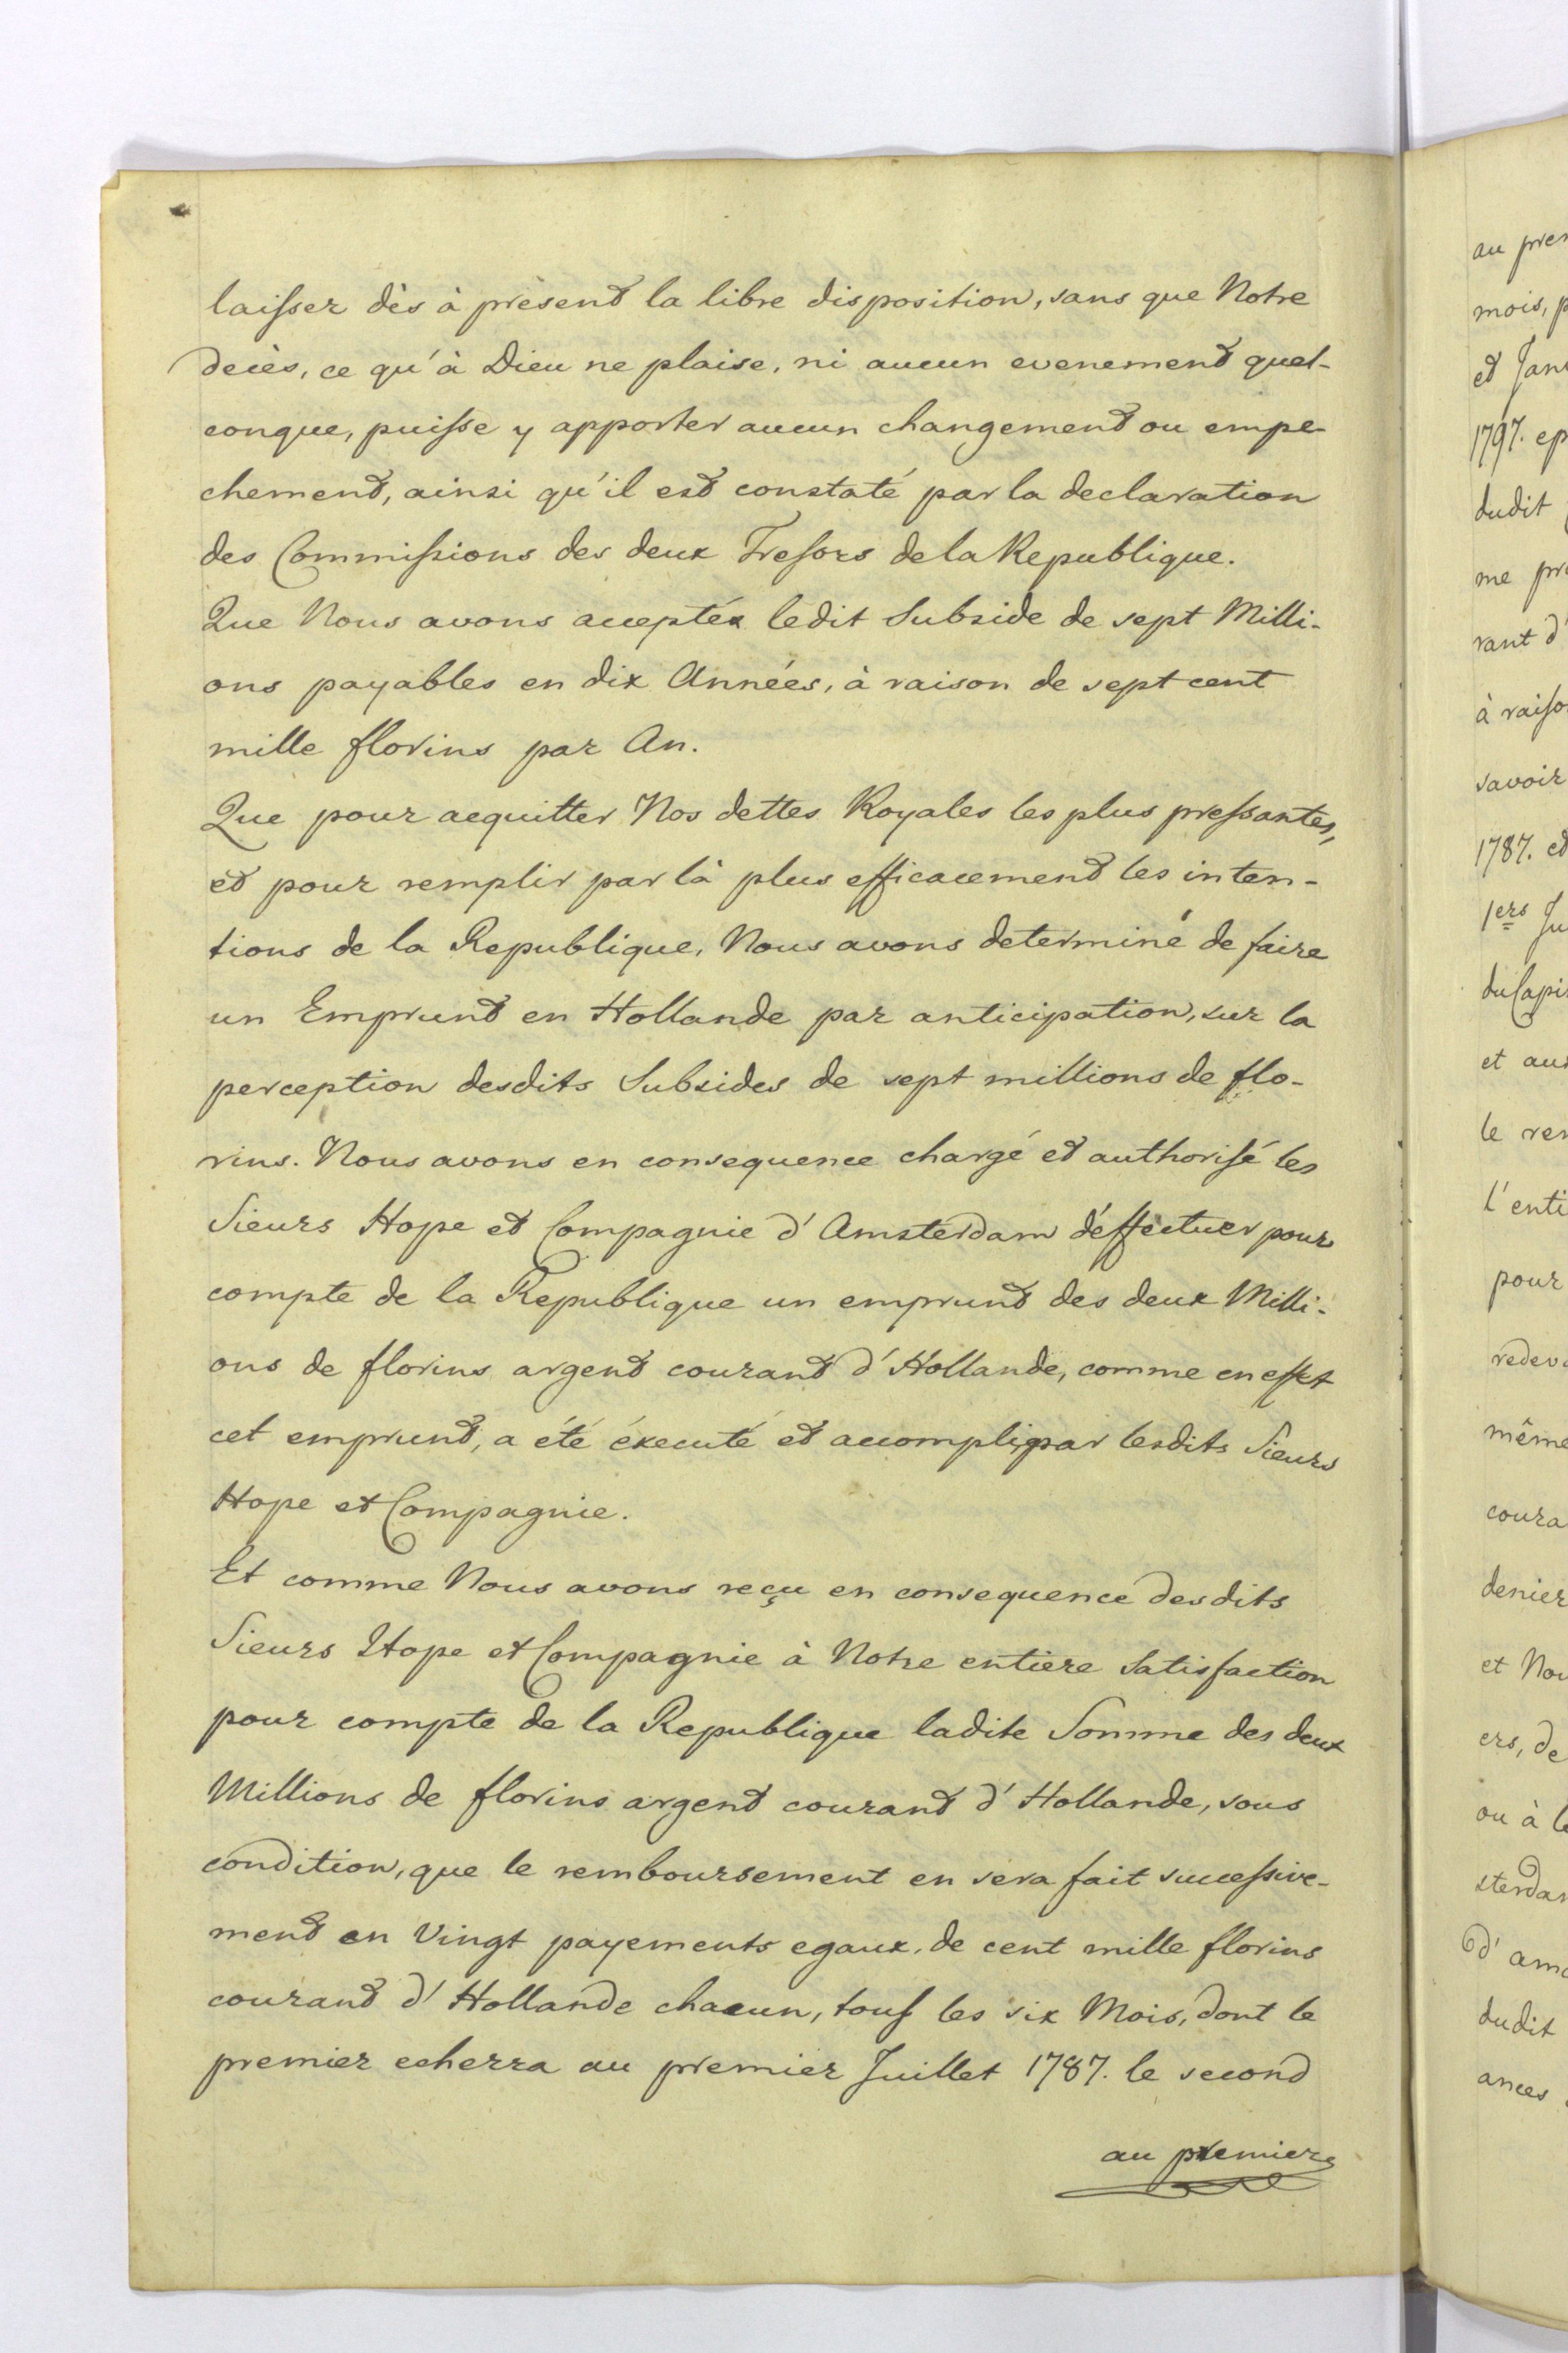 laisser dès à présent la libre disposition, sans que Notre
decès, ce qu'à Dieu ne plaise, ni aucun evenement quel-
conque, puisse y apporter aucun changement ou empe-
chement, ainsi qu'il est constaté par la declaration
des Commissions des deux Tresors de la Republique.
Que Nous avons acceptés ledit Subside de sept Milli-
ons payables en dix Années, à raison de sept cent
mille florins par An.
Que pour acquitter Nos dettes Royales les plus pressantes,
et pour remplir par là plus efficacement les inten-
tions de la Republique, Nous avons determiné de faire
un Emprunt en Hollande par anticipation, sur la
perception desdits Subsides de sept millions de flo-
rins. Nous avons en consequence chargé et authorisé les
Sieurs Hope et Compagnie d'Amsterdam d'effectuer pour
compte de la Republique un emprunt des deux Milli-
ons de florins argent courant d'Hollande, comme en effet
cet emprunt, a été éxecuté et accompli par lesdits Sieurs
Hope et Compagnie.
Et comme Nous avons reçu en consequence desdits
Sieurs Hope et Compagnie à Notre entiere Satisfaction
pour compte de la Republique ladite Somme des deux
Millions de florins argent courant d'Hollande, sous
condition, que le remboursement en sera fait successive-
ment en Vingt payements egaux, de cent mille florins
courant d'Hollande chacun, tous les six Mois, dont le
premier echerra au premier Juillet 1787. le second
au premier
au
mois,
et
1797.
dudit
me
rant d'
à
savoir
1787. et
1ers
du
et
le
l'
pour
même
et
ers, de
ou à
d'
dudit